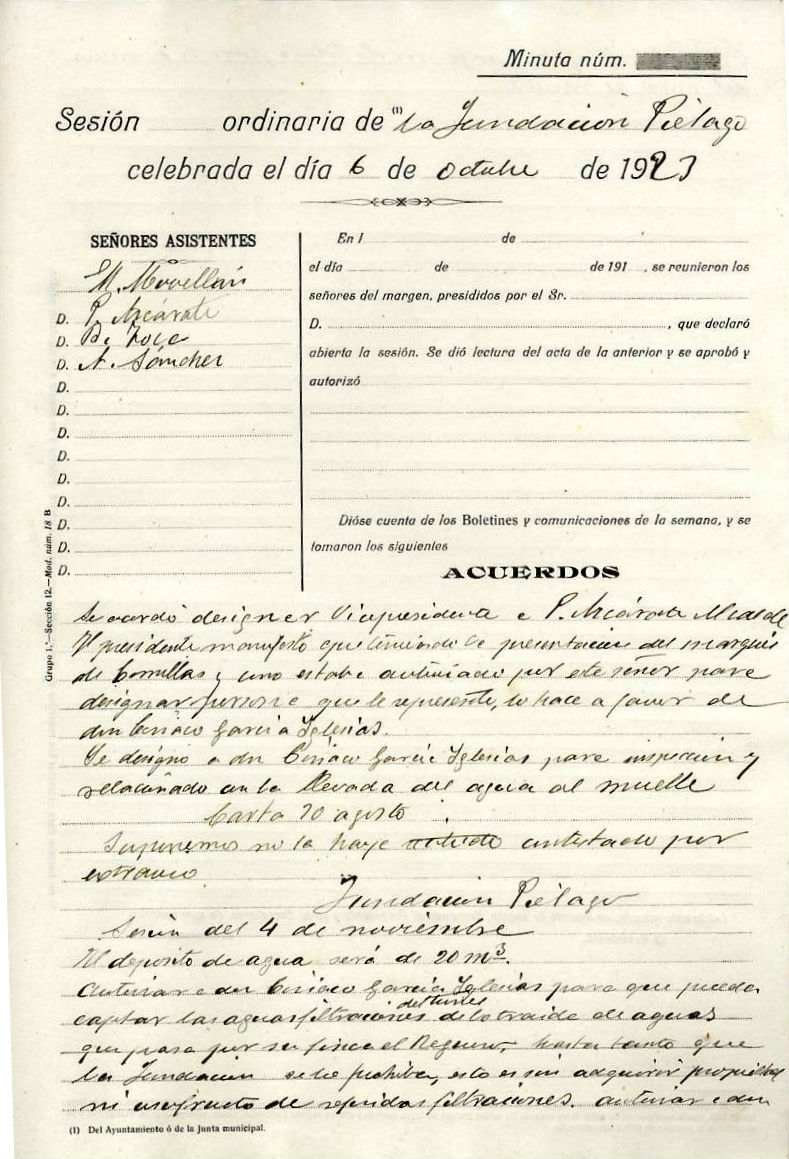 Minuta núm.
Sesión ordinaria de (1) la Fundación Piélago
celebrada el día 6 de octubre de 1923
SEÑORES ASISTENTES
M. Movellán
D. P. Azcárate
D.
D. A. Sánchez
D.
D.
D.
D.
D.
D.
D.
D.
D.
En l de
el día de de 191 , se reunieron los
señores del margen, presididos por el Sr.
D. , que declaró
abierta la sesión. Se dió lectura del acta de la anterior y se aprobó y
autorizó
Dióse cuenta de los Boletines y comunicaciones de la semana, y se
tomaron los siguientes
ACUERDOS
Se acordó designar Vicepresidente a P. Azcárate Alcalde
El presidente manifestó que presentación del marqués
de Comillas y como estaba autorizado por este señor para
designar persona que le represente, lo hace a favor de
don Ciriaco García Iglesias.
Se designó a don Ciriaco García Iglesias para inspección y
relacionado con la llevada del agua al muelle
Carta 20 agosto
Suponemos no la haya contestado por
extravío
Fundación Piélago
Sesión del 4 de noviembre
El deposito de agua será de 20 m3.
Autorizar a don Ciriaco García Iglesias para que pueda
captar las aguas filtraciones de la traida de aguas
que pasa por su finca el Reguero, hasta tanto que
la Fundación se lo prohiba, esto es sin adquirir propiedad
ni usufructo de referidas filtraciones. autorizar a don
(1) Del Ayuntamiento ó de la Junta municipal.
Grupo 1.º—Sección 12.—Mod. núm. 18 B